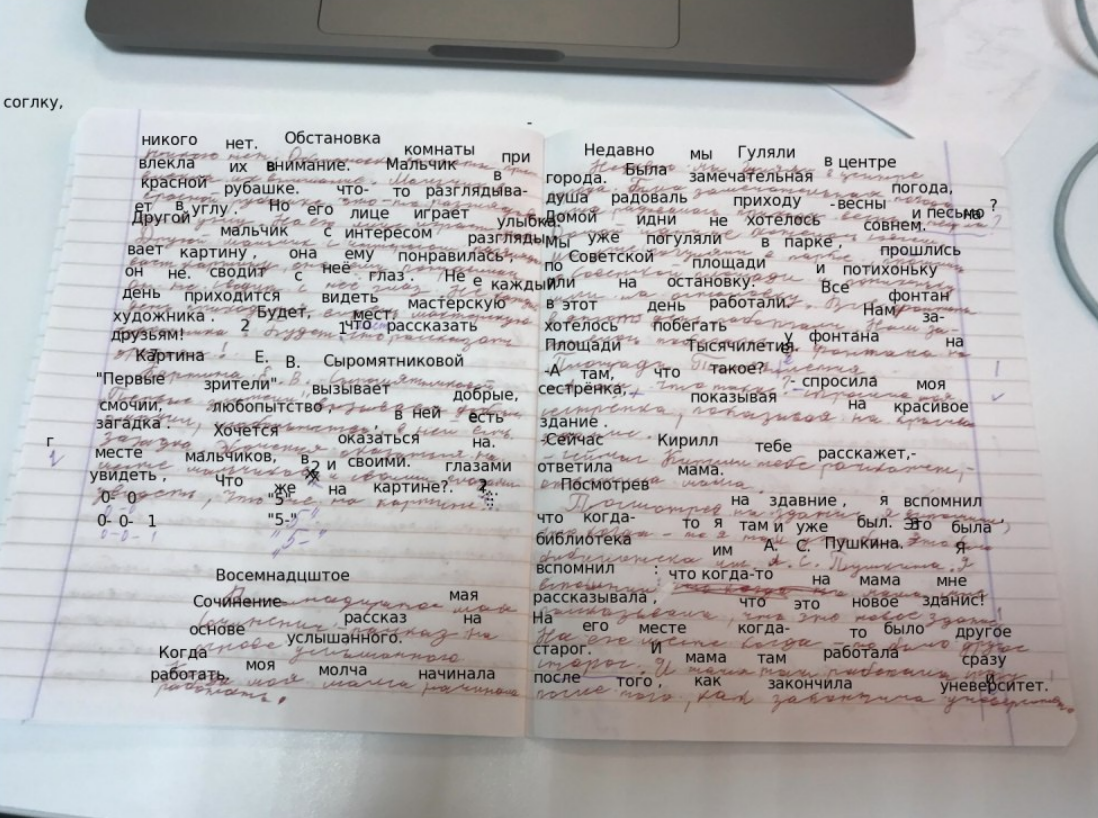 соглку,
никого нет. Обстановка комнаты при
влекла их внимание. Мальчик в
красной рубашке. что- то разглядыва-
ет в углу. Но его лице играет улыбка.
Другой мальчик с интересом разгляды
вает картину, она ему понравилась,
он не. сводит с неё глаз. Не каждый
день приходится видеть мастерскую
художника. Будет, мест.
2 1 что рассказать
друзьям!
Картина Е. В. Сыромятниковой
"Первые зрители" вызывает добрые,
смочии, любопытство, в ней есть
загадка. Хочется оказаться на.
г
месте мальчиков, в 2 и своими. глазами
увидеть, что же на картине?. 2
0- 0 "5"
0- 0- 1 "5-"
Восемнадцштое мая
Сочинение рассказ на
основе услышанного.
Когда моя молча начинала
работать.
Недавно мы Гуляли в центре
города. Была замечательная погода,
душа радоваль приходу -весны и песьмо ?
Домой идни не хотелось совнем.
Мы уже погуляли в парке, прошлись
по Советской площади и потихоньку
или на остановку: Все фонтан
в этот день работали. Нам за-
хотелось побегать у фонтана на
Площади Тысячилетия.
-А там, что такое? - спросила моя
сестрёнка, показывая на красивое
здание.
-Сейчас Кирилл тебе расскажет,-
ответила мама.
Посмотрев на здавние, я вспомнил
что когда- то я там и уже был. Это была
библиотека им А. С. Пушкина. Я
вспомнил : что когда-то на мама мне
рассказывала, что это новое зданис!
На его месте когда- то было другое
старог. И мама там работала сразу
после того, как закончила университет.